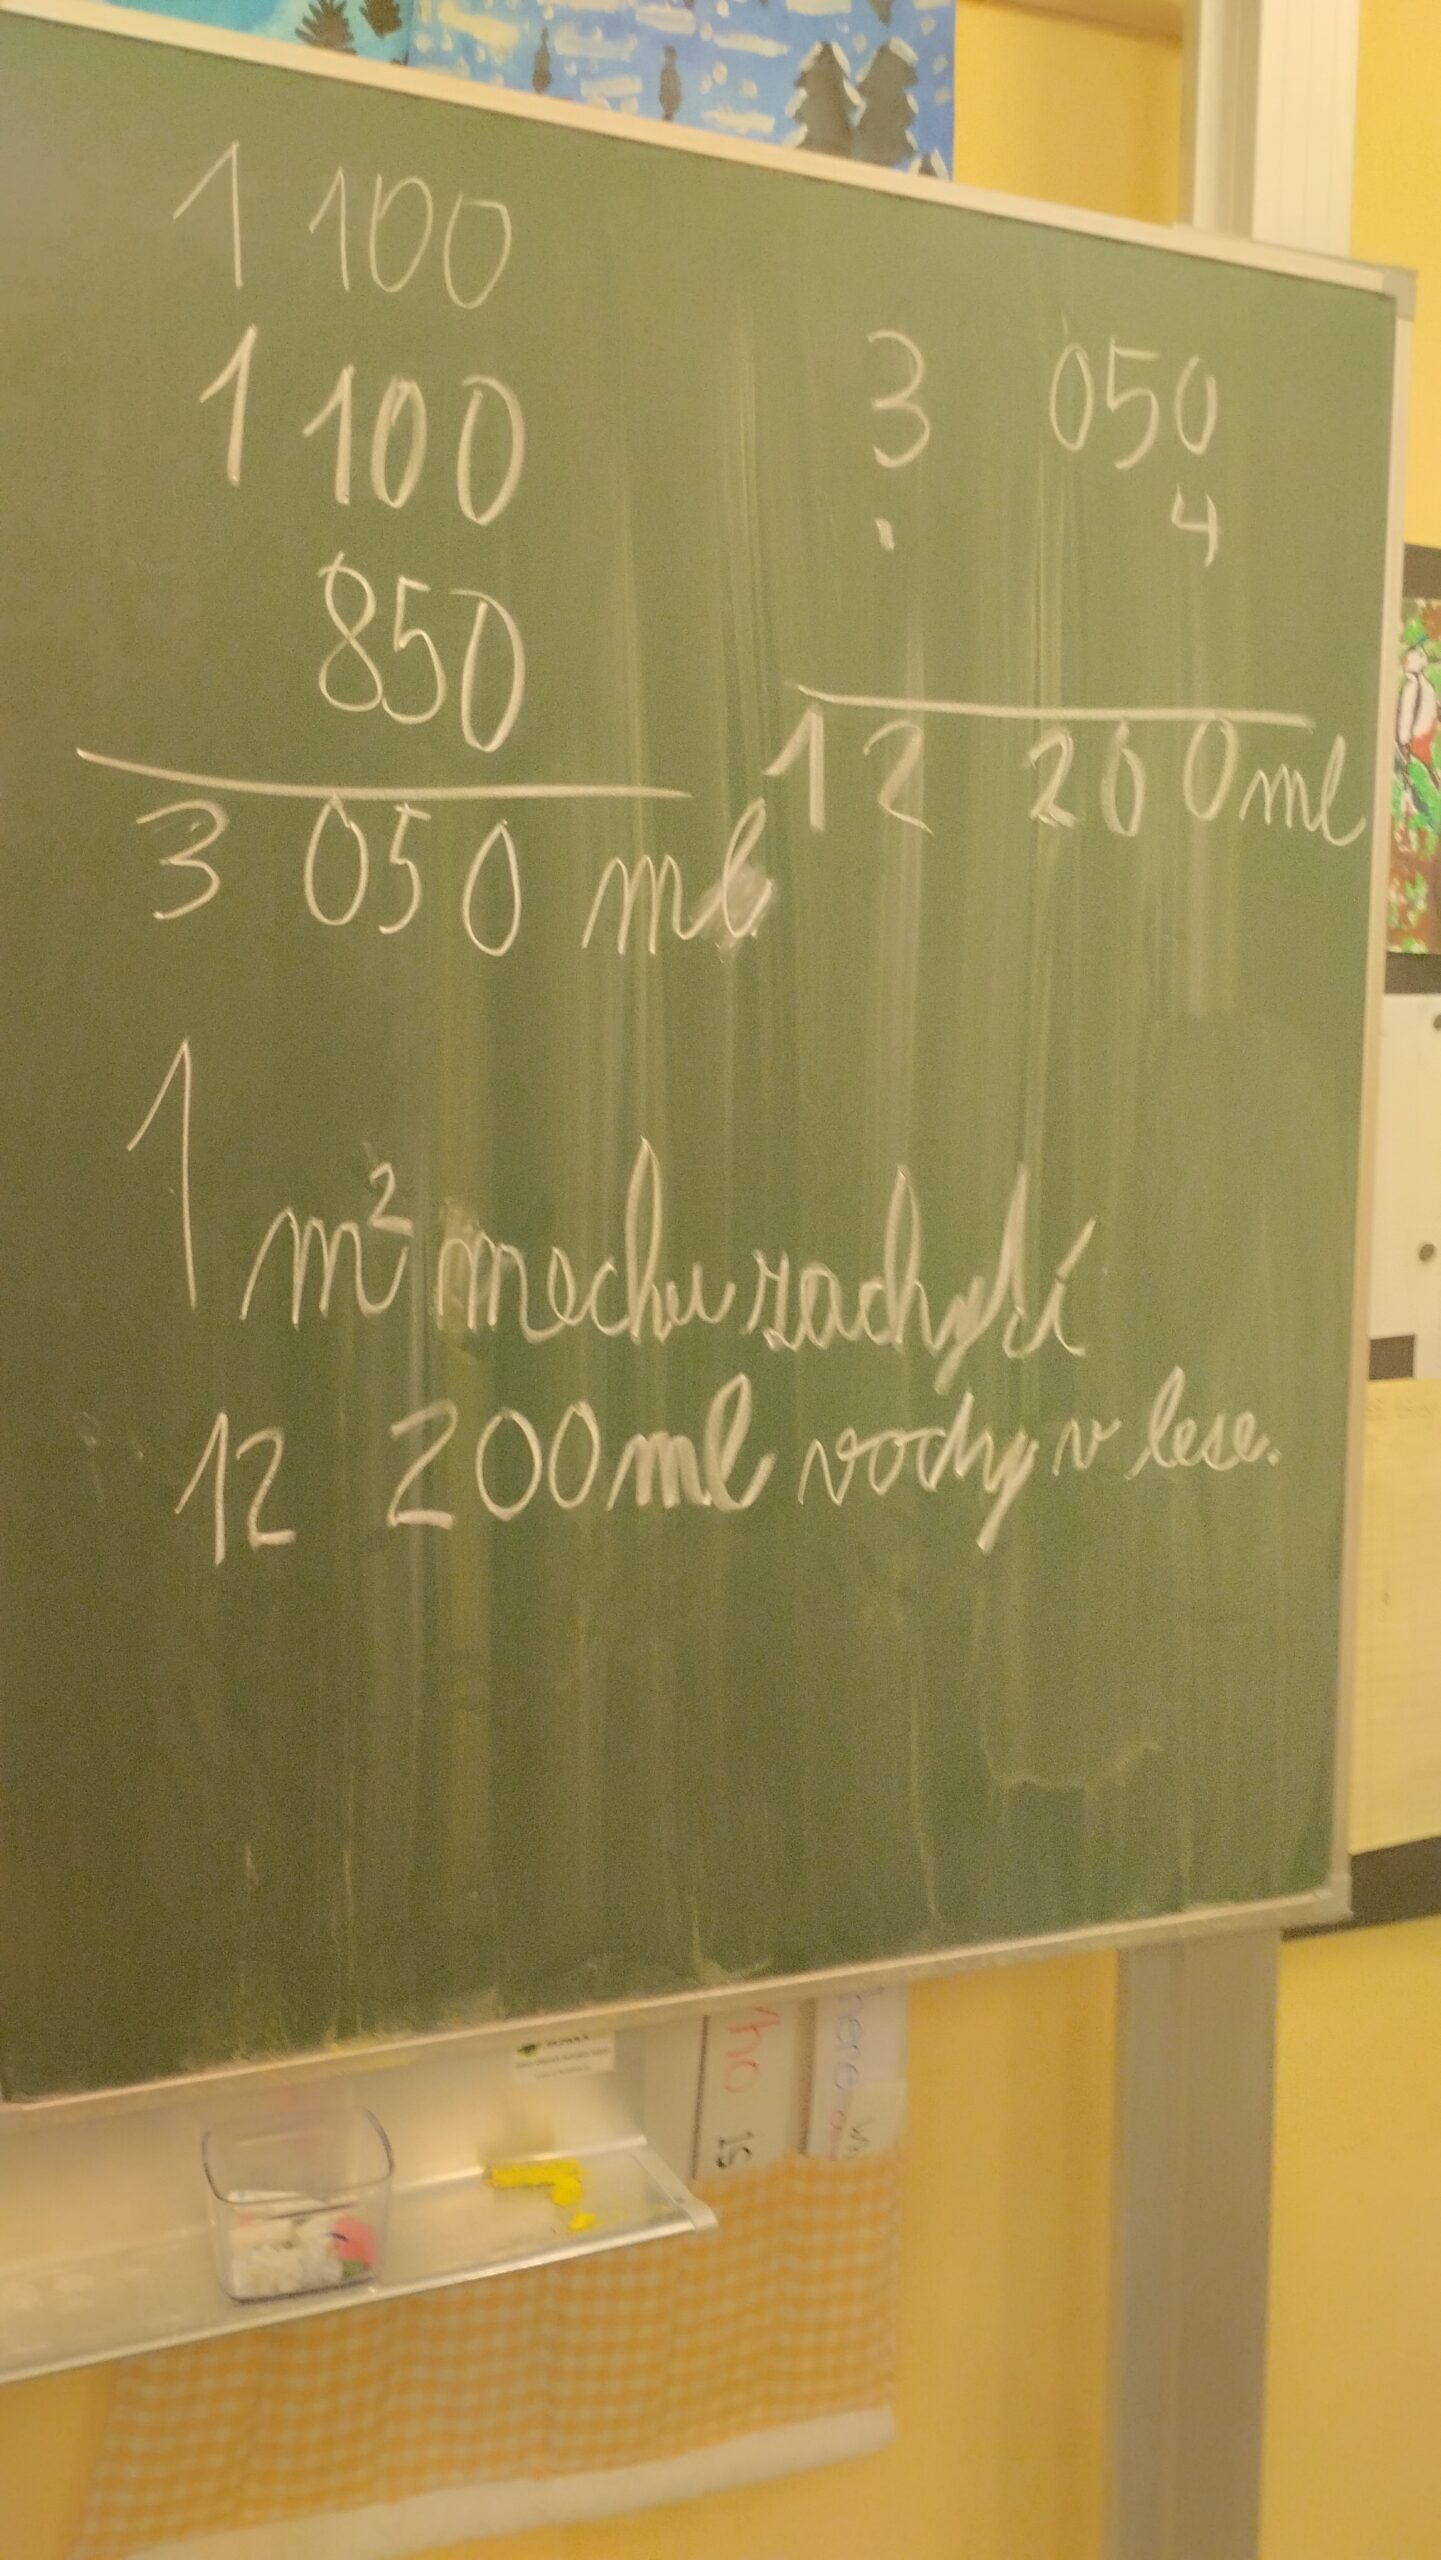 1 100
1 100
850
3 050 ml
3 050
. 4
12 200 ml
1 m² mechu zachytí
12 200 ml vody v lese.
ho is